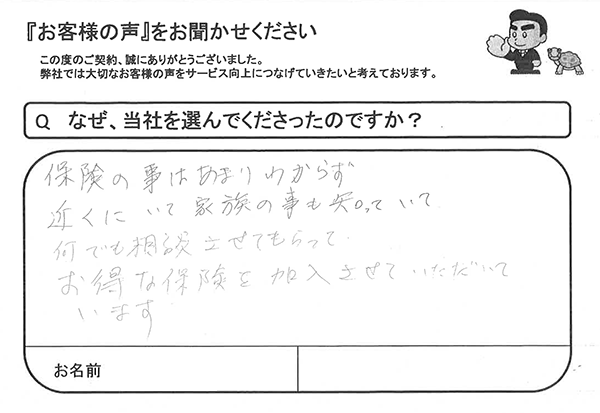 『お客様の声』をお聞かせください
この度のご契約、誠にありがとうございました。
弊社では大切なお客様の声をサービス向上につなげていきたいと考えております。
Q なぜ、当社を選んでくださったのですか？
保険の事はあまりわからず
近くにいて家族の事も知っていて
何でも相談させてもらって
お得な保険を加入させていただいて
います
お名前